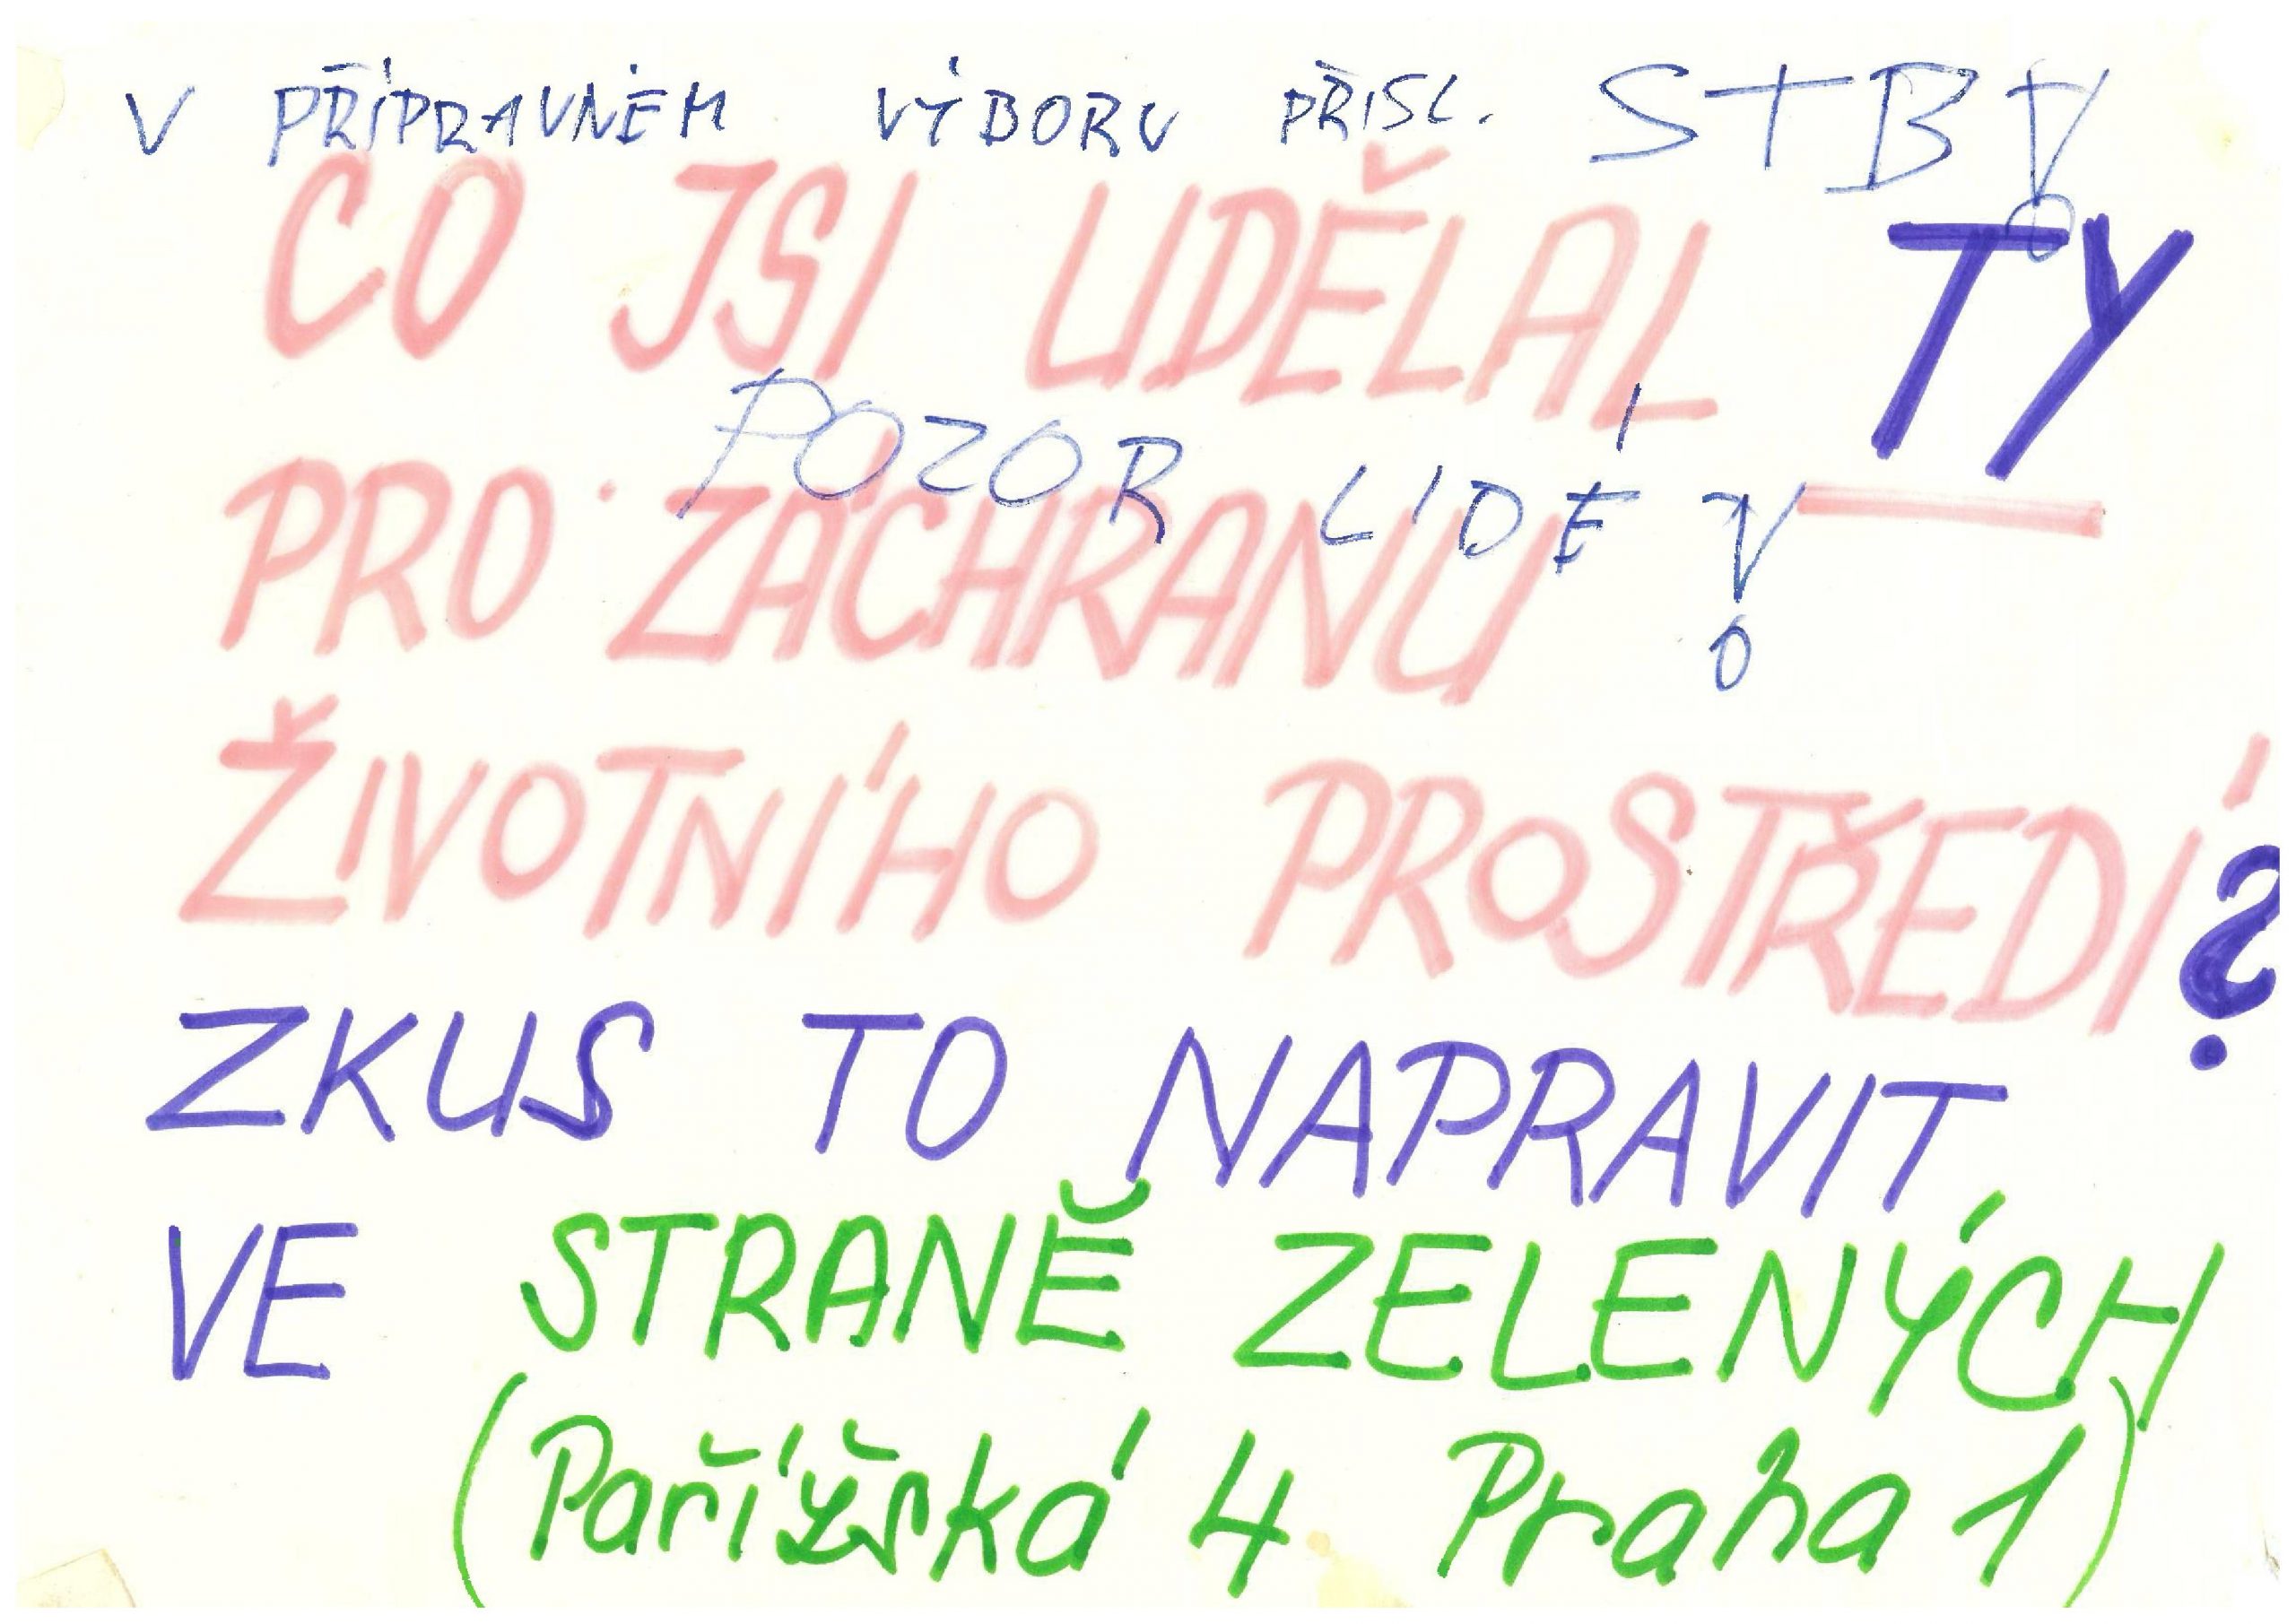 V PŘÍPRAVNÉM VÝBORU PŘISL. STB!
CO JSI UDĚLAL TY
POZOR LIDÉ!
PRO ZÁCHRANU
ŽIVOTNÍHO PROSTŘEDÍ?
ZKUS TO NAPRAVIT
VE STRANĚ ZELENÝCH
(Pařížská 4 Praha 1)